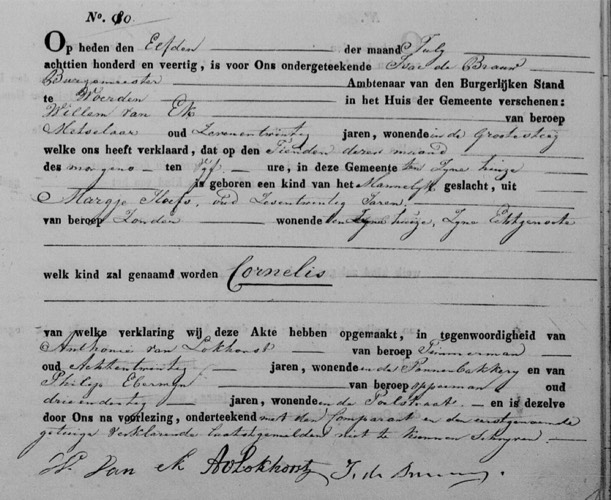 No. 80.
Op heden den Elfden der maand July
achttien honderd en veertig, is voor Ons ondergeteekende Isac de Brauw
Burgemeester Ambtenaar van den Burgerlijken Stand
te Woerden in het Huis der Gemeente verschenen:
Willem van Ek van beroep
Metselaar oud Zevenentwintig jaren, wonende in de Grootesteeg
welke ons heeft verklaard, dat op den Tienden dezer maand
des morgens ten Vyf ure, in deze Gemeente ten Zynen huize
is geboren een kind van het Mannelyk geslacht, uit
Margje oud Zesentwintig Jaren,
van beroep Zonder wonende ten huize, Zyne Echtgenoote
welk kind zal genaamd worden Cornelis
van welke verklaring wij deze Akte hebben opgemaakt, in tegenwoordigheid van
Anthonie van Lokhorst van beroep Timmerman
oud Achtentwintig jaren, wonende in de Pannenbakkery en van
Philip Eberwin van beroep opperman oud
drieendertig jaren, wonende in de Poelstraat en is dezelve
door Ons na voorlezing, onderteekend met den Comparant en den eerstgenoemde
getuige verklarende laatstgemelden niet te kunnen Schryven.
W. van ek AvLokhorst I. de